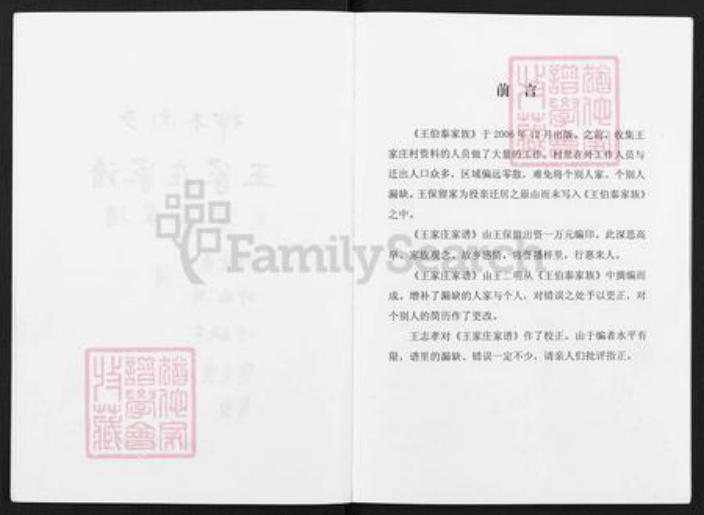 前言
《王伯泰家族》于2006年12月出版。之前,收集王
家庄村资料的人员做了大量的工作。村里在外工作人员与
迁出人口众多,区域偏远零散,难免将个别人家、个别人
漏缺。王保留家为投亲迁居之原由而未写入《王伯泰家族》
之中。
《王家庄家谱》由王保留出资一万元编印。此深恩高
厚,家族观念,故乡感情,将誉播梓里,行惠来人。
《王家庄家谱》由王二明从《王伯泰家族》中摘编而
成。增补了漏缺的人家与个人,对错误之处予以更正,对
个别人的简历作了更改。
王志孝对《王家庄家谱》作了校正。由于编者水平有
限,谱里的漏缺、错误一定不少,请亲人们批评指正。
FamilySearch